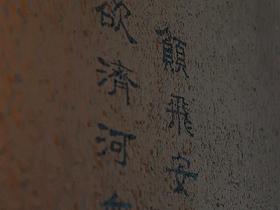 願飛安
欲濟河無